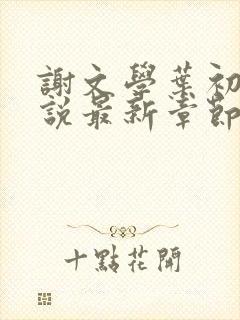 謝文學葉初
説最新章節
十點花開